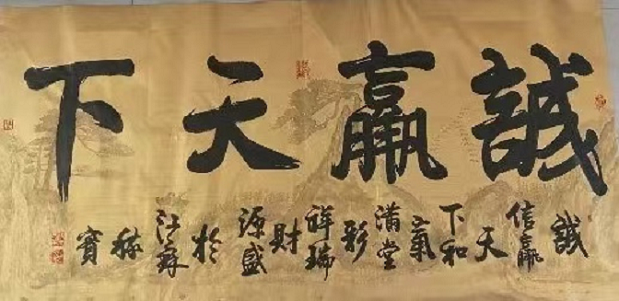 誠贏天下
誠信贏天下和氣滿堂彩祥瑞財源盛於江蘇